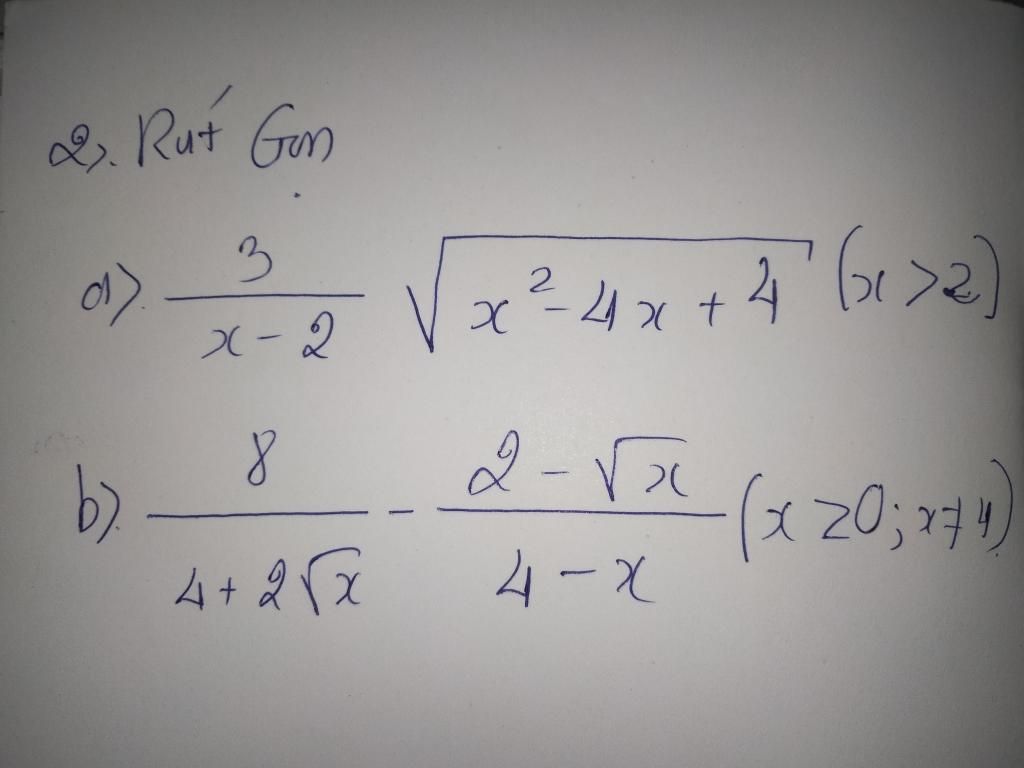 2). Rút Gọn
a). \frac{3}{x-2} \sqrt{x^2-4x+4} (x>2)
b). \frac{8}{4+2\sqrt{x}} - \frac{2-\sqrt{x}}{4-x} (x≥0; x≠4)